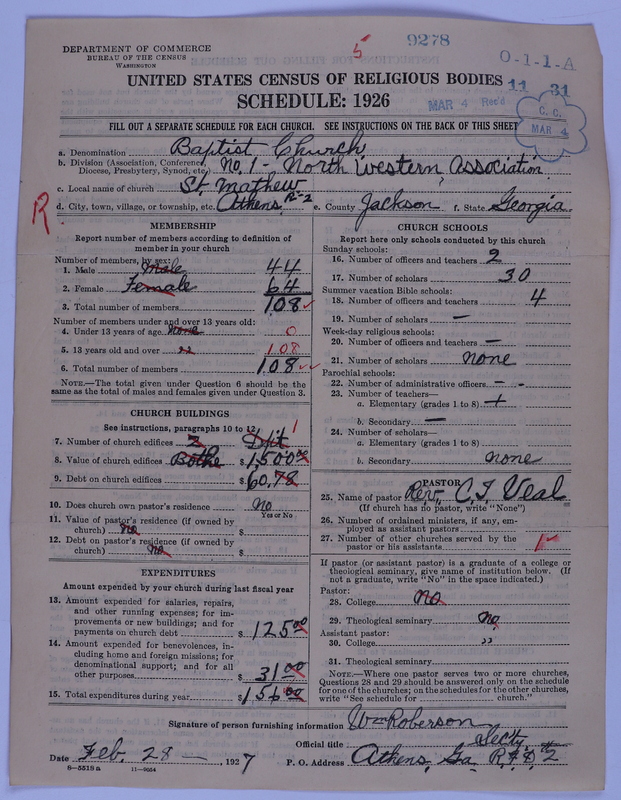 9278
5
O-1-1-A
DEPARTMENT OF COMMERCE
BUREAU OF THE CENSUS
WASHINGTON
UNITED STATES CENSUS OF RELIGIOUS BODIES
11 31
SCHEDULE: 1926
MAR 4 Rec'd
C. C.
MAR 4
FILL OUT A SEPARATE SCHEDULE FOR EACH CHURCH. SEE INSTRUCTIONS ON THE BACK OF THIS SHEET
a. Denomination Baptist Church
b. Division (Association, Conference,
Diocese, Presbytery, Synod, etc.) No, 1 - North Western Association
c. Local name of church St. Mathew
d. City, town, village, or township, etc. Athens R-2 e. County Jackson f. State Georgia
R
MEMBERSHIP
Report number of members according to definition of
member in your church
Number of members, by sex:
1. Male Male 44
2. Female Female 64
3. Total number of members 108
Number of members under and over 13 years old:
4. Under 13 years of age none 0
5. 13 years old and over " 108
6. Total number of members 108
NOTE.—The total given under Question 6 should be the
same as the total of males and females given under Question 3.
CHURCH BUILDINGS
See instructions, paragraphs 10 to 12
7. Number of church edifices 2 1
8. Value of church edifices Bothe $1,500 00
9. Debt on church edifices $60,78
10. Does church own pastor's residence No
Yes or No
11. Value of pastor's residence (if owned by
church) No $
12. Debt on pastor's residence (if owned by
church) No $
EXPENDITURES
Amount expended by your church during last fiscal year
13. Amount expended for salaries, repairs,
and other running expenses; for im-
provements or new buildings; and for
payments on church debt $125 00
14. Amount expended for benevolences, in-
cluding home and foreign missions; for
denominational support; and for all
other purposes $31 00
15. Total expenditures during year $156 00
CHURCH SCHOOLS
Report here only schools conducted by this church
Sunday schools:
16. Number of officers and teachers 2
17. Number of scholars 30
Summer vacation Bible schools:
18. Number of officers and teachers 4
19. Number of scholars —
Week-day religious schools:
20. Number of officers and teachers —
21. Number of scholars none
Parochial schools:
22. Number of administrative officers - -
23. Number of teachers—
a. Elementary (grades 1 to 8)
b. Secondary —
24. Number of scholars—
a. Elementary (grades 1 to 8)
b. Secondary none
PASTOR
25. Name of pastor Rev. C. T. Veal
(If church has no pastor, write "None")
26. Number of ordained ministers, if any, em-
ployed as assistant pastors
27. Number of other churches served by the
pastor or his assistants 1
If pastor (or assistant pastor) is a graduate of a college or
theological seminary, give name of institution below. (If
not a graduate, write "No" in the space indicated.)
Pastor:
28. College No
29. Theological seminary No
Assistant pastor:
30. College "
31. Theological seminary
NOTE.—Where one pastor serves two or more churches,
Questions 28 and 29 should be answered only on the schedule
for one of the churches; on the schedules for the other churches,
write "See schedule for church."
Signature of person furnishing information Wm Roberson
Official title Secty
Date Feb. 28 — 1927 P. O. Address Athens, Ga, R.F.D. #2
8—5518 a 11—9054